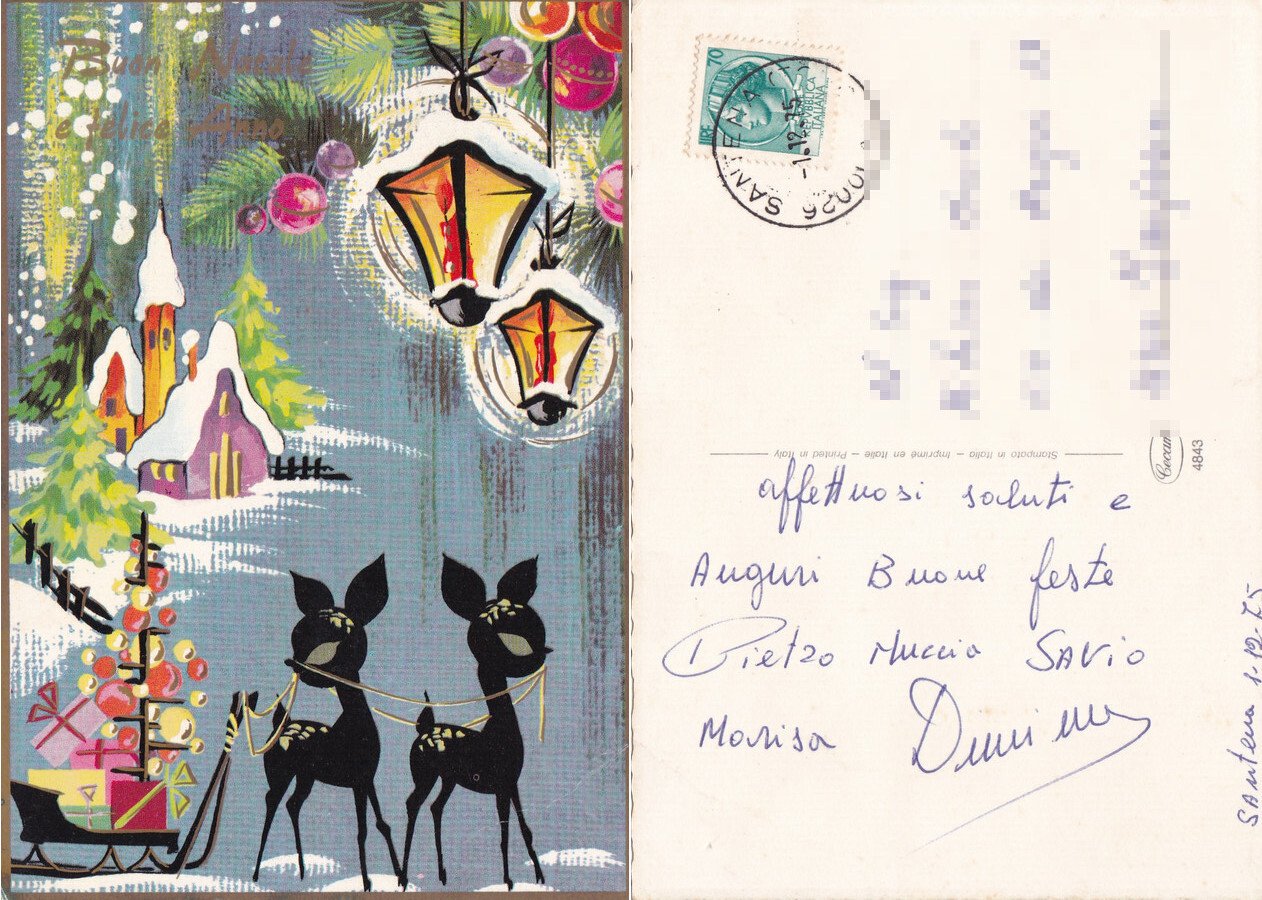 Buon Natale
e felice Anno
LIRE 70
REPUBBLICA
ITALIANA
SANTENA
10026
-1.12.75
Stampato in Italia – Imprimé en Italie – Printed in Italy
Cecami
4843
affettuosi saluti e
Auguri Buone feste
Pietro Muccia SAVIO
Marisa
SANtena 1-12-75